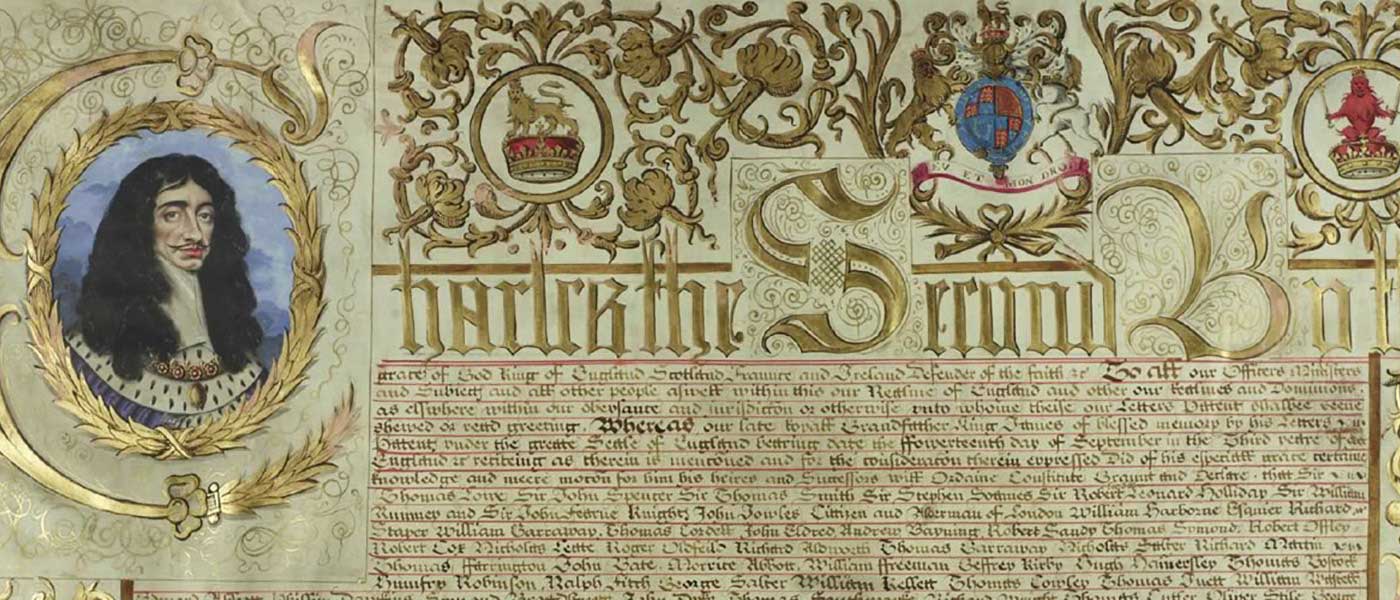 ET MON DRO
Charles the Second By t
grace of God King of England Scotland Fraunce and Ireland Defender of the faith &c To all our Officers Ministers
and Subiects and all other people aswell within this our Realme of England and other our Realmes and Dominions
as elswhere within our obeysance and iurisdiccon or otherwise unto whome theise our Letters Patent shalbee seene
shewed or read greeting. Whereas our late royall Grandfather King James of blessed memory by his Letters
Patent under the greate Seale of England bearing date the ffowerteenth day of September in the Third yeare of
England &c reciteing as therein is mentioned and for the consideracon therein expressed Did of his especiall grace certaine
knowledge and meere mocon for him his heires and Successors will Ordaine Constitute Graunt and Declare that Sir
Thomas Lowe Sir John Spencer Sir Thomas Smith Sir Stephen Soames Sir Robert Leonard Holliday Sir William
Rumney and Sir John Fearne Knights John Jowles Citizen and Alderman of London William Harborne Esquier Richard
Staper William Garraway Thomas Cordell John Eldred Andrew Bayning Robert Sandy Thomas Symond Robert Offley
Robert Cox Nicholas Leate Roger Oldfeild Richard Aldworth Thomas Garraway Nicholas Salter Richard Martin
Thomas ffarrington John Bate Morrice Abbott William ffreeman Geffrey Kirby Hugh Hamersley Thomas
Humfry Robinson Ralph ffitch George Salter William Kellett Thomas Cowley Thomas Juett William